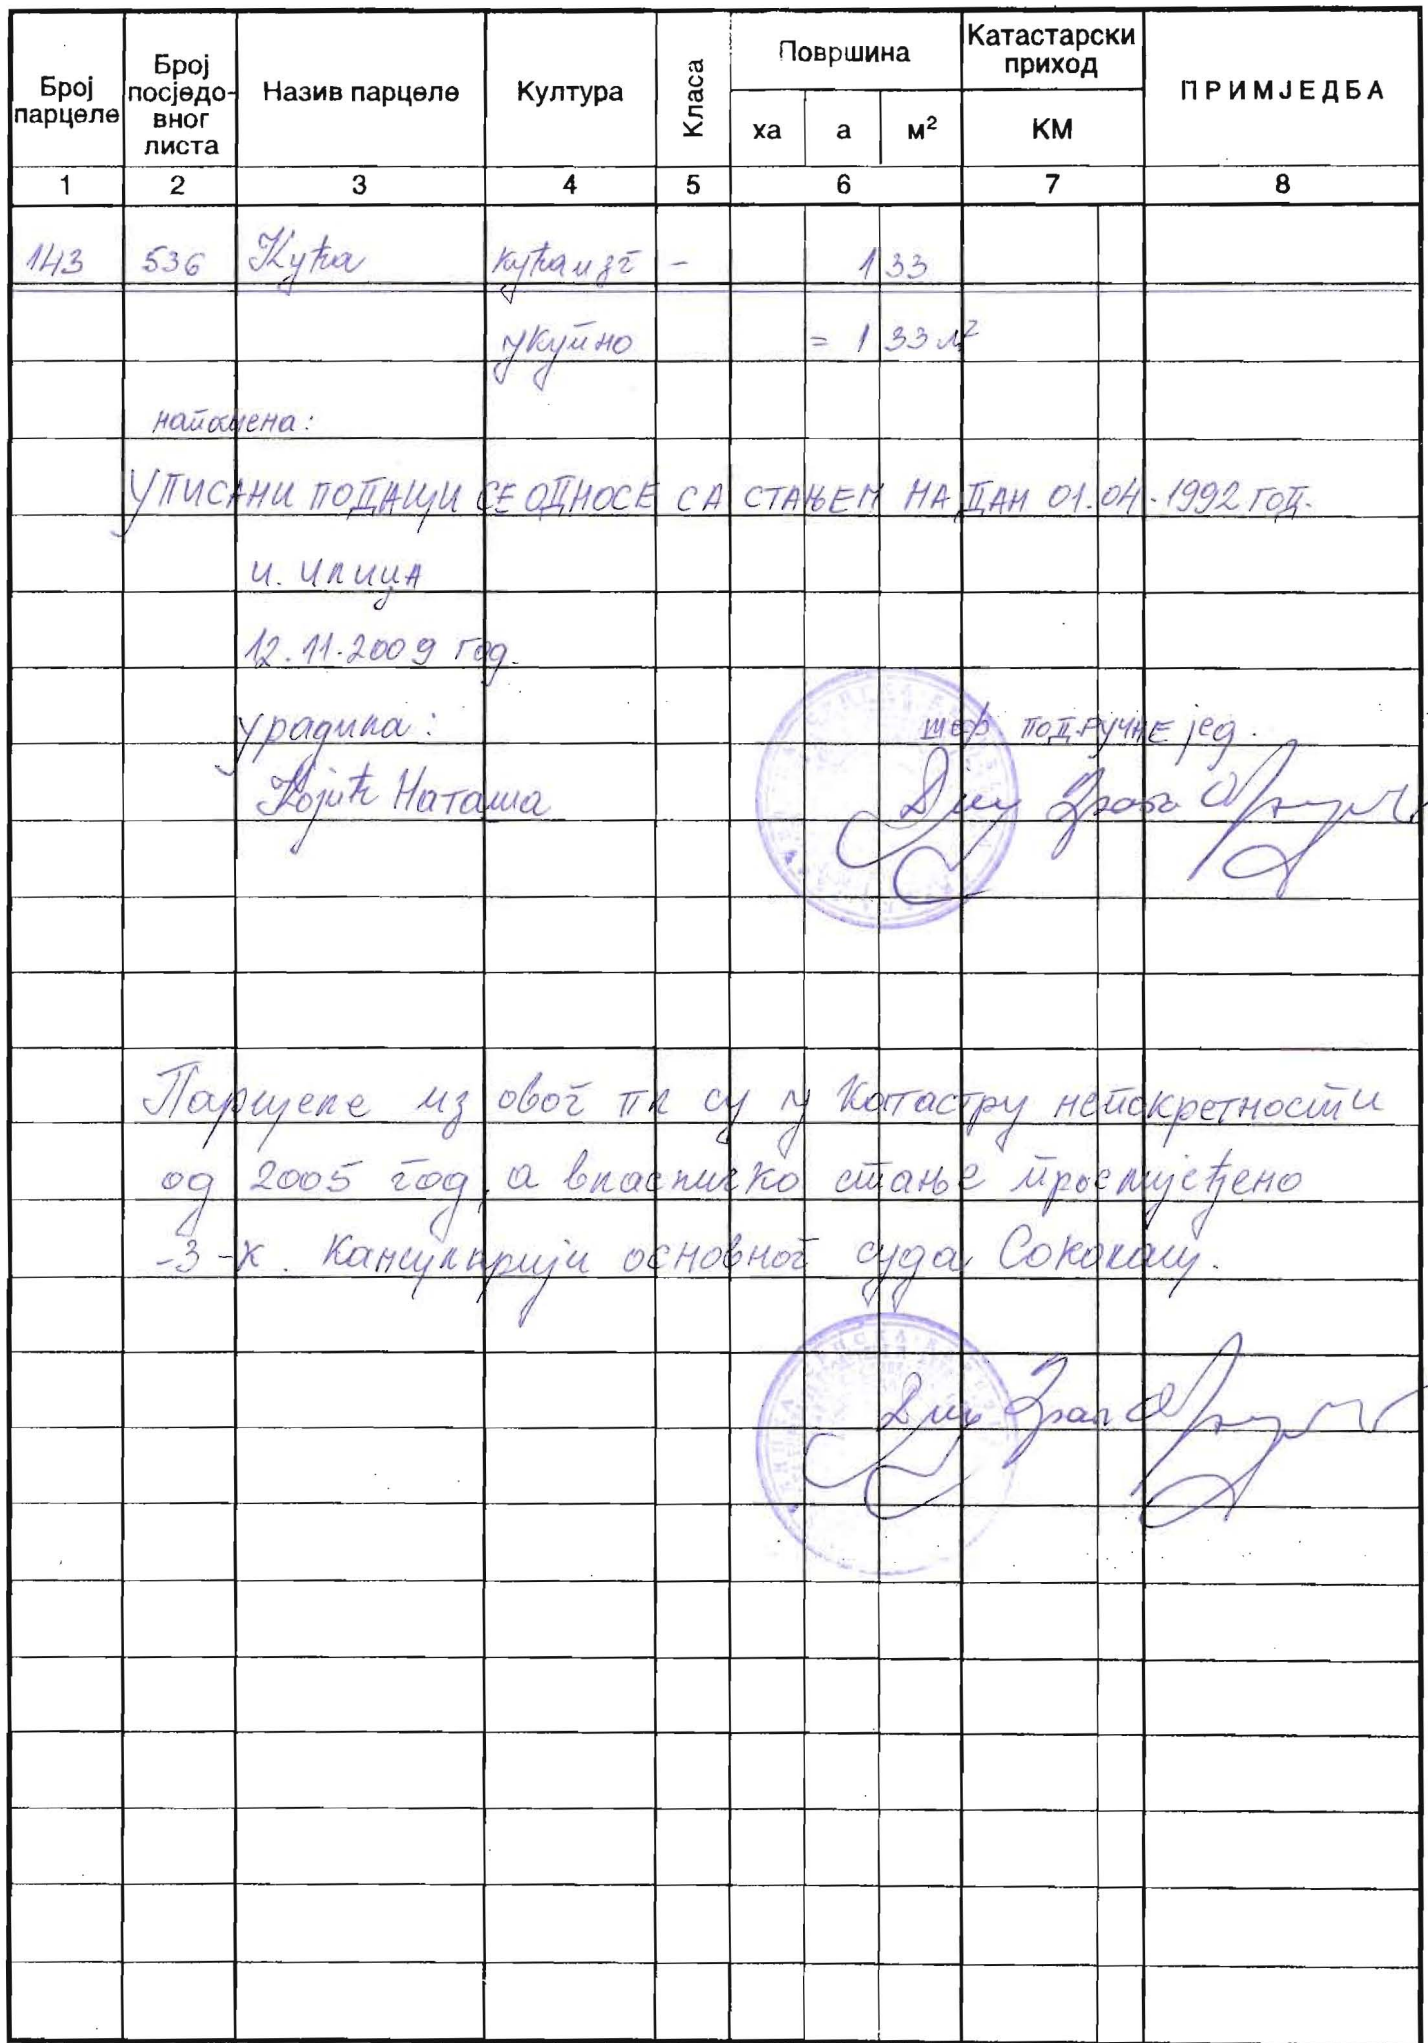 Број парцеле Број посједо- вног листа Назив парцеле Култура Класа Површина Катастарски приход ПРИМЈЕДБА
ха а м² КМ
1 2 3 4 5 6 7 8
143 536 Кућа кућа и зг - 1 33
укупно = 1 33 м²
напомена:
УПИСАНИ ПОДАЦИ СЕ ОДНОСЕ СА СТАЊЕМ НА ДАН 01.04.1992 ГОД.
И. Илиџа
12.11.2009 год.
урадила: шеф подручне јед.
Којић Наташа
Парцеле из овог пл су у Катастру непокретности
од 2005 год, а власничко стање прослијеђено
-З-К. Канцеларији основног суда Соколац.